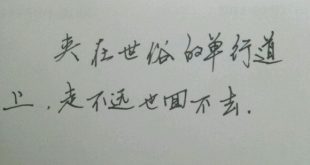 夹在世俗的单行道
上，走不远也回不去.